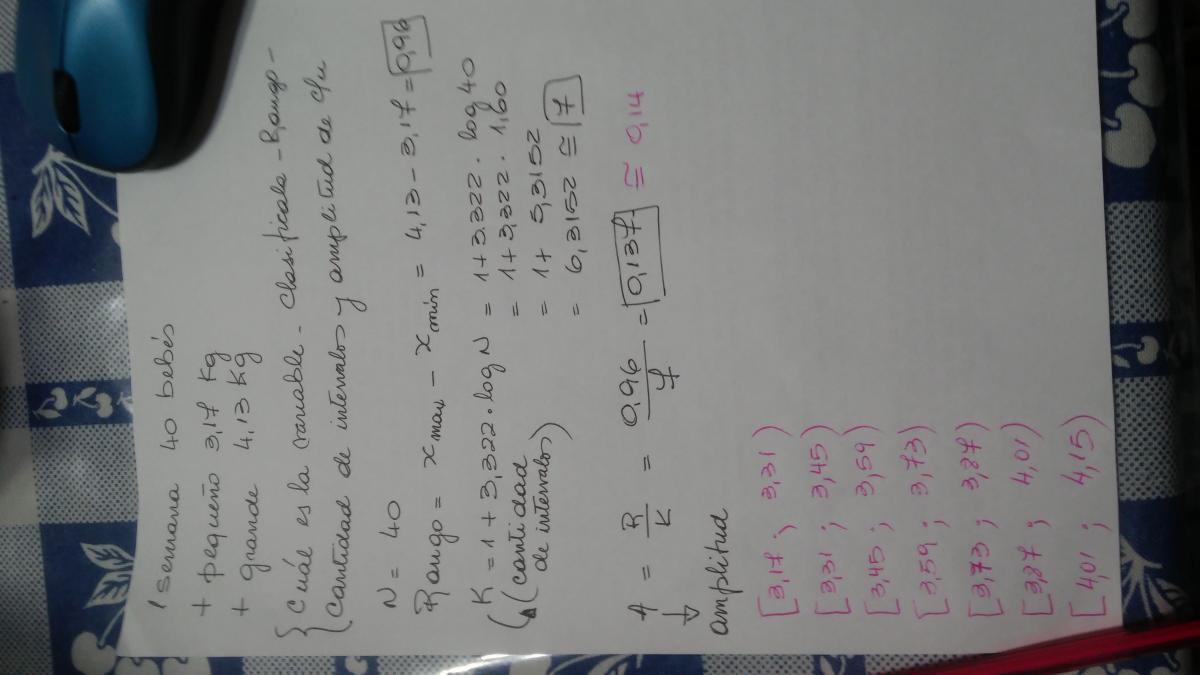 1 semana 40 bebés
+ pequeño 3,17 Kg
+ grande 4,13 Kg
{ Cuál es la variable - Clasifícala - Rango -
Cantidad de intervalos y amplitud de c/u
N = 40
Rango = x max - x min = 4,13 - 3,17 = 0,96
K = 1 + 3,322 · log N = 1 + 3.322 · log 40
(cantidad de intervalos) = 1 + 3,322 · 1,60
= 1 + 5,3152
= 6,3152 ≅ 7
A = R/K = 0,96/7 = 0,137 ≅ 0,14
↓
amplitud
[3,17 ; 3,31)
[3,31 ; 3,45)
[3,45 ; 3,59)
[3,59 ; 3,73)
[3,73 ; 3,87)
[3,87 ; 4,01)
[4,01 ; 4,15)